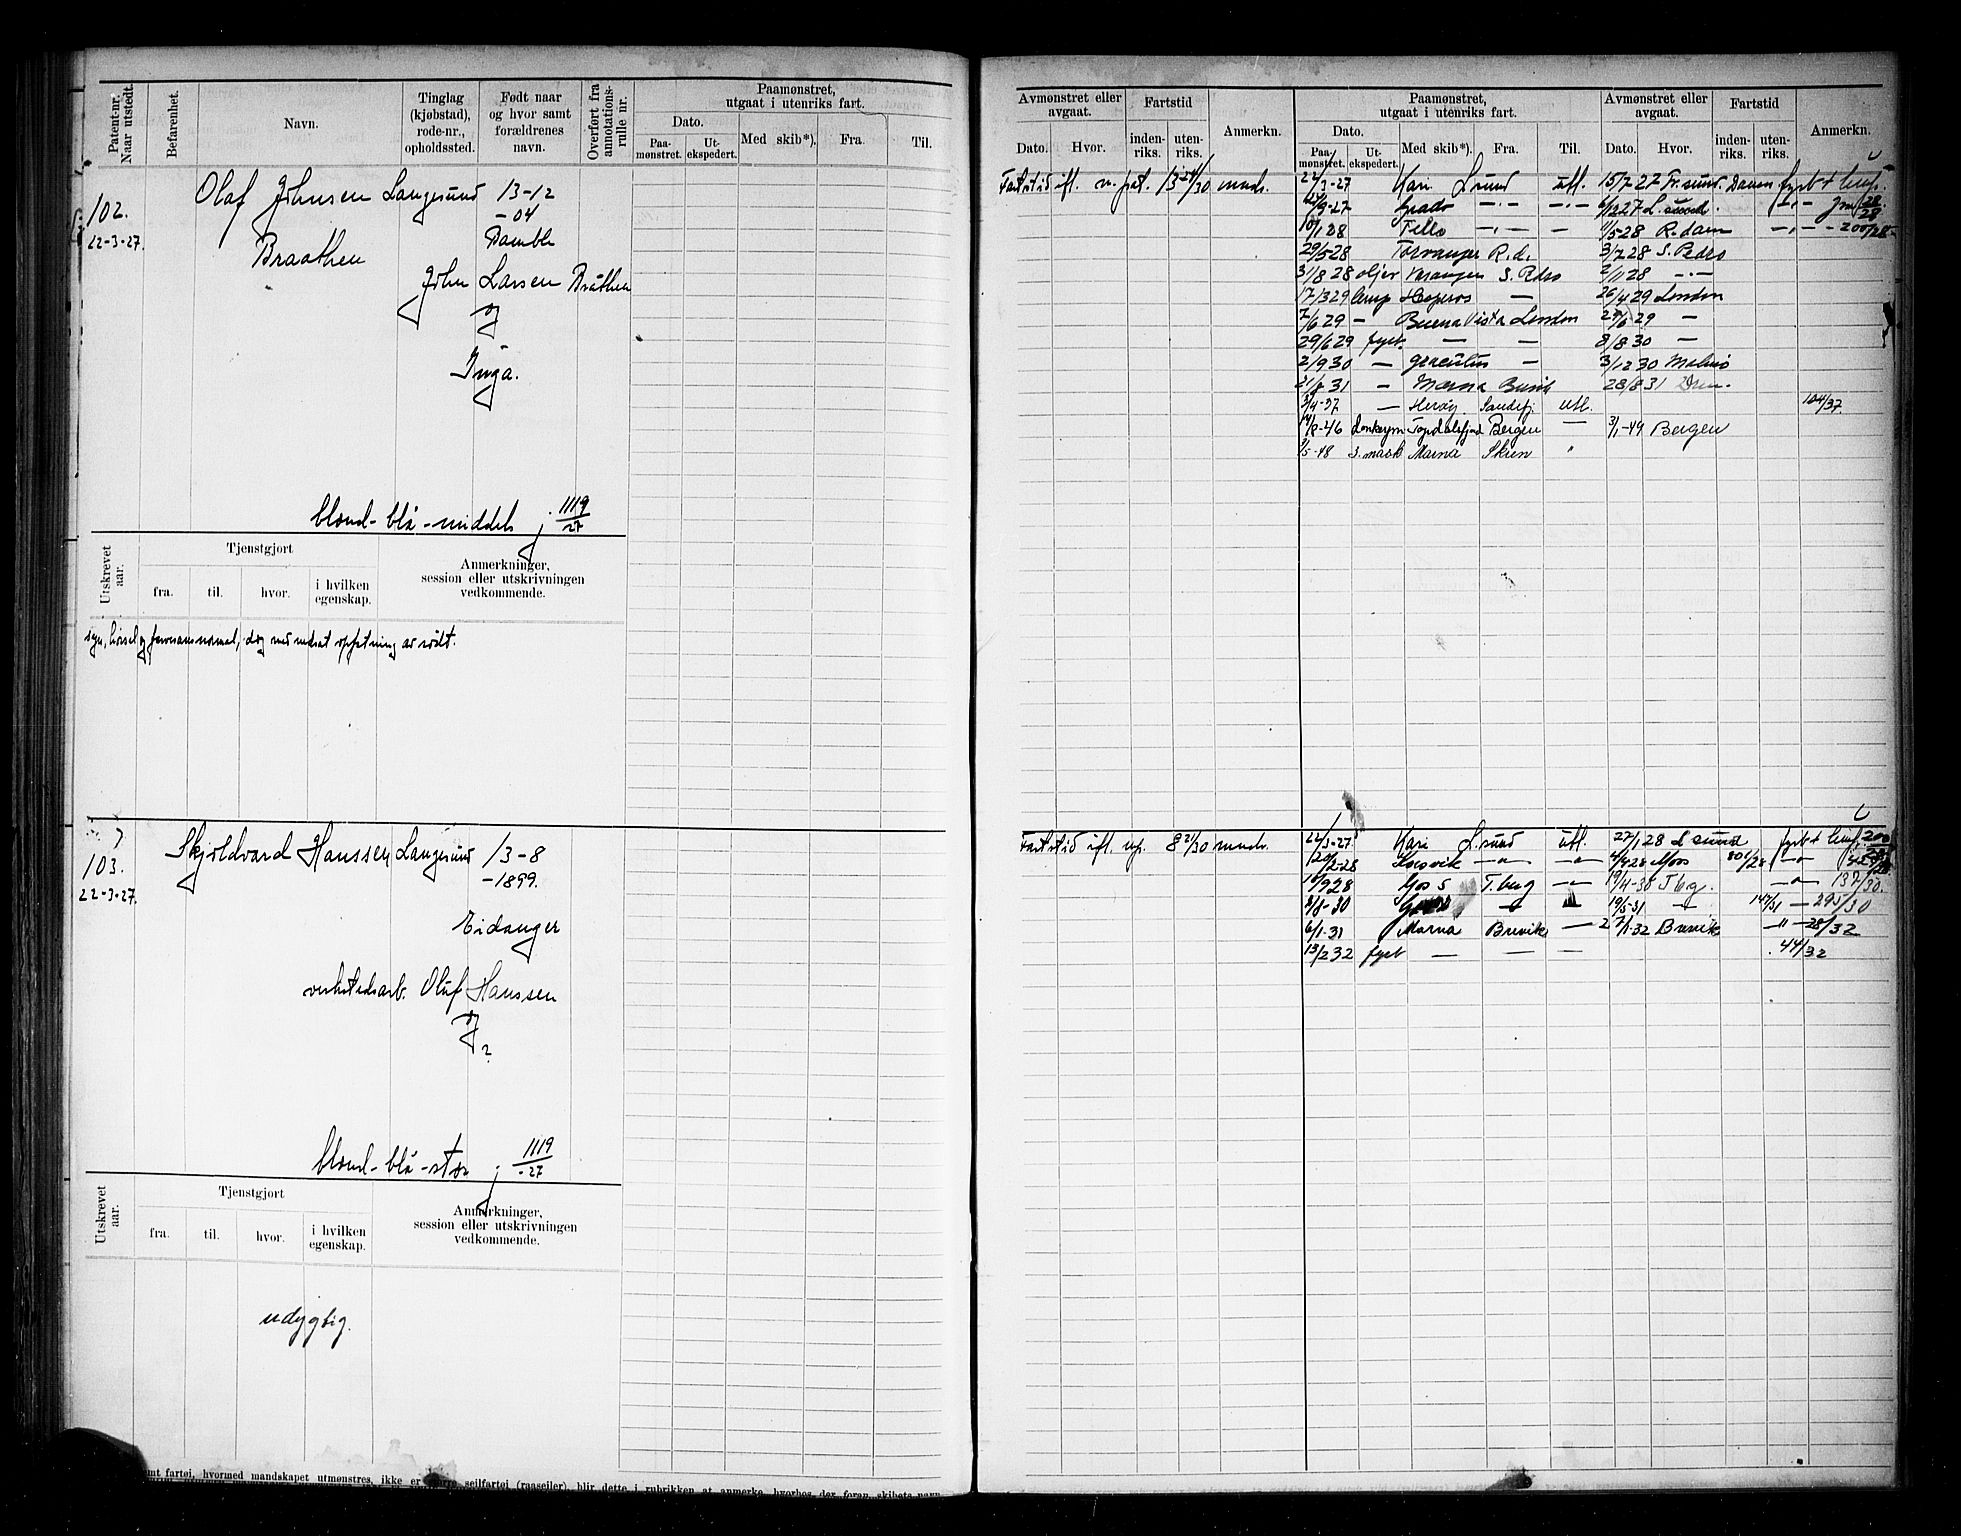 Patent-nr. Naar utstedt.
Befarenhet.
Navn.
Tinglag (kjøbstad), rode-nr., opholdssted.
Født naar og hvor samt forældrenes navn.
Overført fra annotations-rulle nr.
Paamønstret, utgaat i utenriks fart.
Dato.
Paa-mønstret.
Ut-ekspedert.
Med skib*).
Fra.
Til.
102.
22-3-27.
Olaf Johnsen Langesund 13-12
-04
Braathen Bamble
John Larsen Bråthen
og
Inga.
blond - blå - middels j. 1119/27
Utskrevet aar.
Tjenstgjort
fra.
til.
hvor.
i hvilken egenskap.
Anmerkninger, session eller utskrivningen vedkommende.
syn, hørsel og farvesans normal, dog med nedsat opfatning av rødt.
103.
22-3-27.
Skjoldvard Hanssen Langesund 13-8
-1899.
Eidanger
verkstedsarb. Oluf Hanssen
og
?
blond - blå - stor j. 1119/-27
Utskrevet aar.
Tjenstgjort
fra.
til.
hvor.
i hvilken egenskap.
Anmerkninger, session eller utskrivningen vedkommende.
udygtig.
fartøi, hvormed mandskapet utmønstres, ikke er seilfartøi (raaseiler), blir dette i rubrikken at anmerke, hvorhos der foran skibets navn
Avmønstret eller avgaat.
Dato.
Hvor.
Fartstid
inden-riks.
uten-riks.
Anmerkn.
Paamønstret, utgaat i utenriks fart.
Dato.
Paa-mønstret.
Ut-ekspedert.
Med skib*).
Fra.
Til.
Avmønstret eller avgaat.
Dato.
Hvor.
Fartstid
inden-riks.
uten-riks.
Anmerkn.
Fartstid ifl. 13 24/30 mndr. 22/3-27 Kari L.sund utl. 15/7 27 Fr.sund. fyrb + lemp.
9-27 -"- -"- 27 L.sund. -"- 28/28
28 Tello -"- - 5-28 R.dam -"- - 200/28
29/5-28 R.d. 3/7 28 S. Pedro
31/8 28 oljer S. Pdro 2/11 28 -"-
17/3 29 lemp Hesperos - 26/4 29 London
7/6 29 - Buena Vista London 29 -
29/6 29 fyrb. - - 8/8 30 -
2/9 30 - - 3/12 30 Malmø
31 - Marna 28/8 31
3/4-37 - Sandefj. utl. 104/37.
14/8-46 donkeym. Topdalsfjord Bergen - 3/1-49 Bergen
5-48 Marna Skien "
Fartstid ifl. 8 21/30 mndr. 22/3-27 Kari L.sund utl. 27/1 28 L sund fyrb + lemp, 200
2-28 -"- -"- 28 Moss -"-
9 28 T.berg -"- 19/4-30 T.bg. -"- 137/30.
8-30 - 19/5-31 - 147/31 - 295/30
6/1-31 Marna Brevik - 27/1-32 Brevik -"- 28/32
13/2 32 fyrb - - 44/32